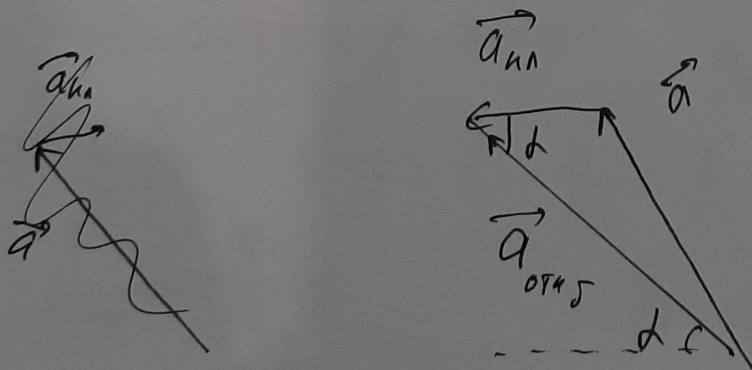 a⃗ нл
a⃗
a⃗ нл
a⃗
α
a⃗ отн б
α